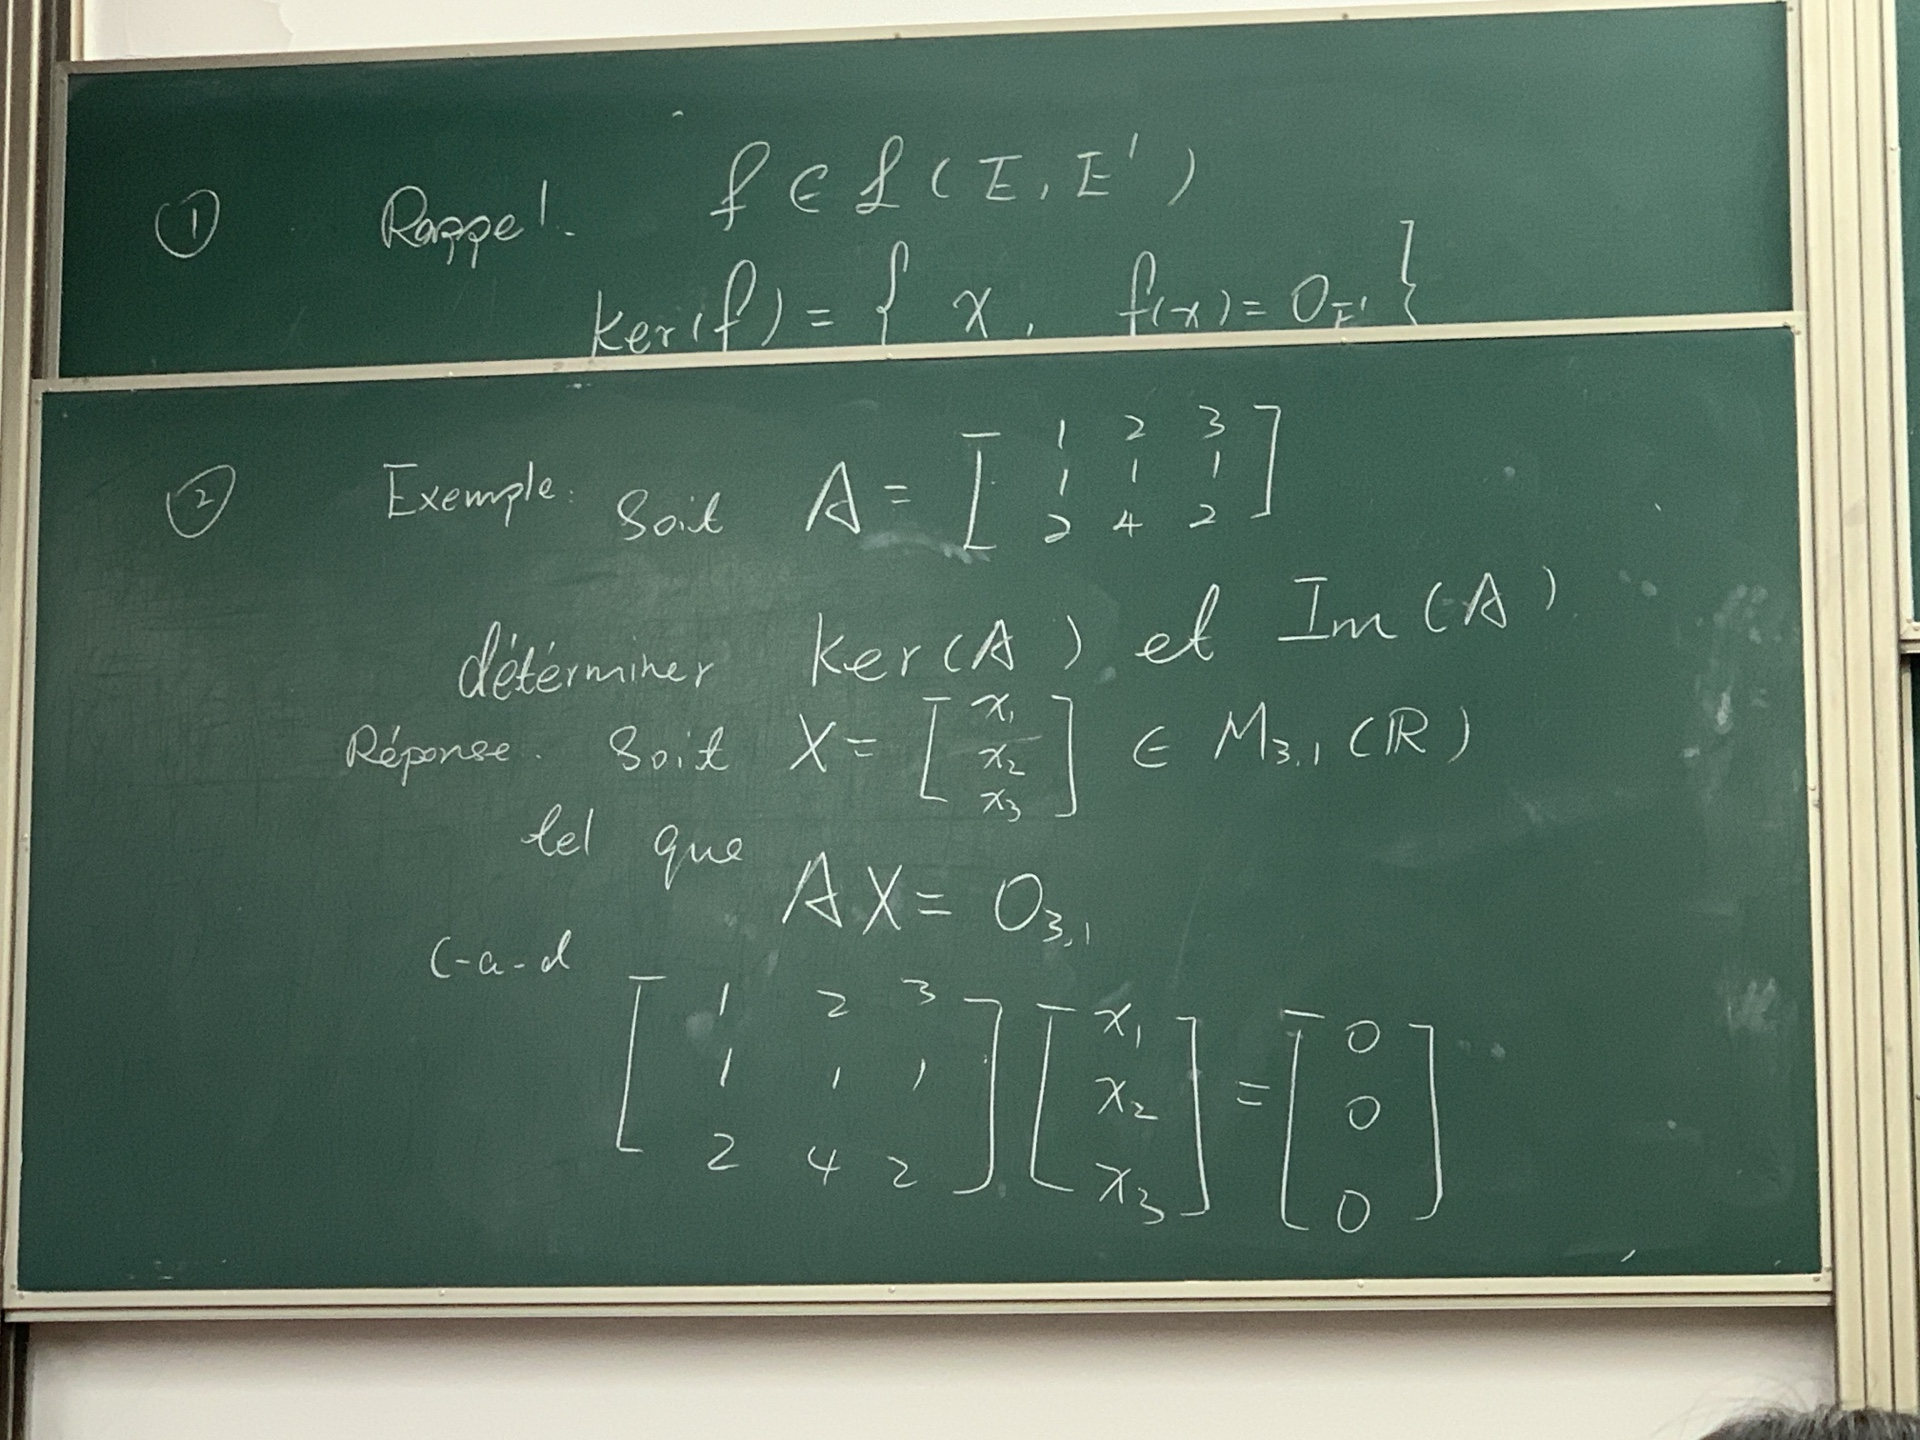 ① Rappel. f ∈ L(E, E')
ker(f) = { x, f(x) = 0_E' }
② Exemple: Soit A = [ 1 2 3
1 1 1
2 4 2 ]
déterminer ker(A) et Im(A)
Réponse. Soit X = [ x₁
x₂
x₃ ] ∈ M₃,₁(ℝ)
tel que
AX = 0₃,₁
c-a-d
[ 1 2 3 ] [ x₁ ] = [ 0 ]
[ 1 1 1 ] [ x₂ ] [ 0 ]
[ 2 4 2 ] [ x₃ ] [ 0 ]